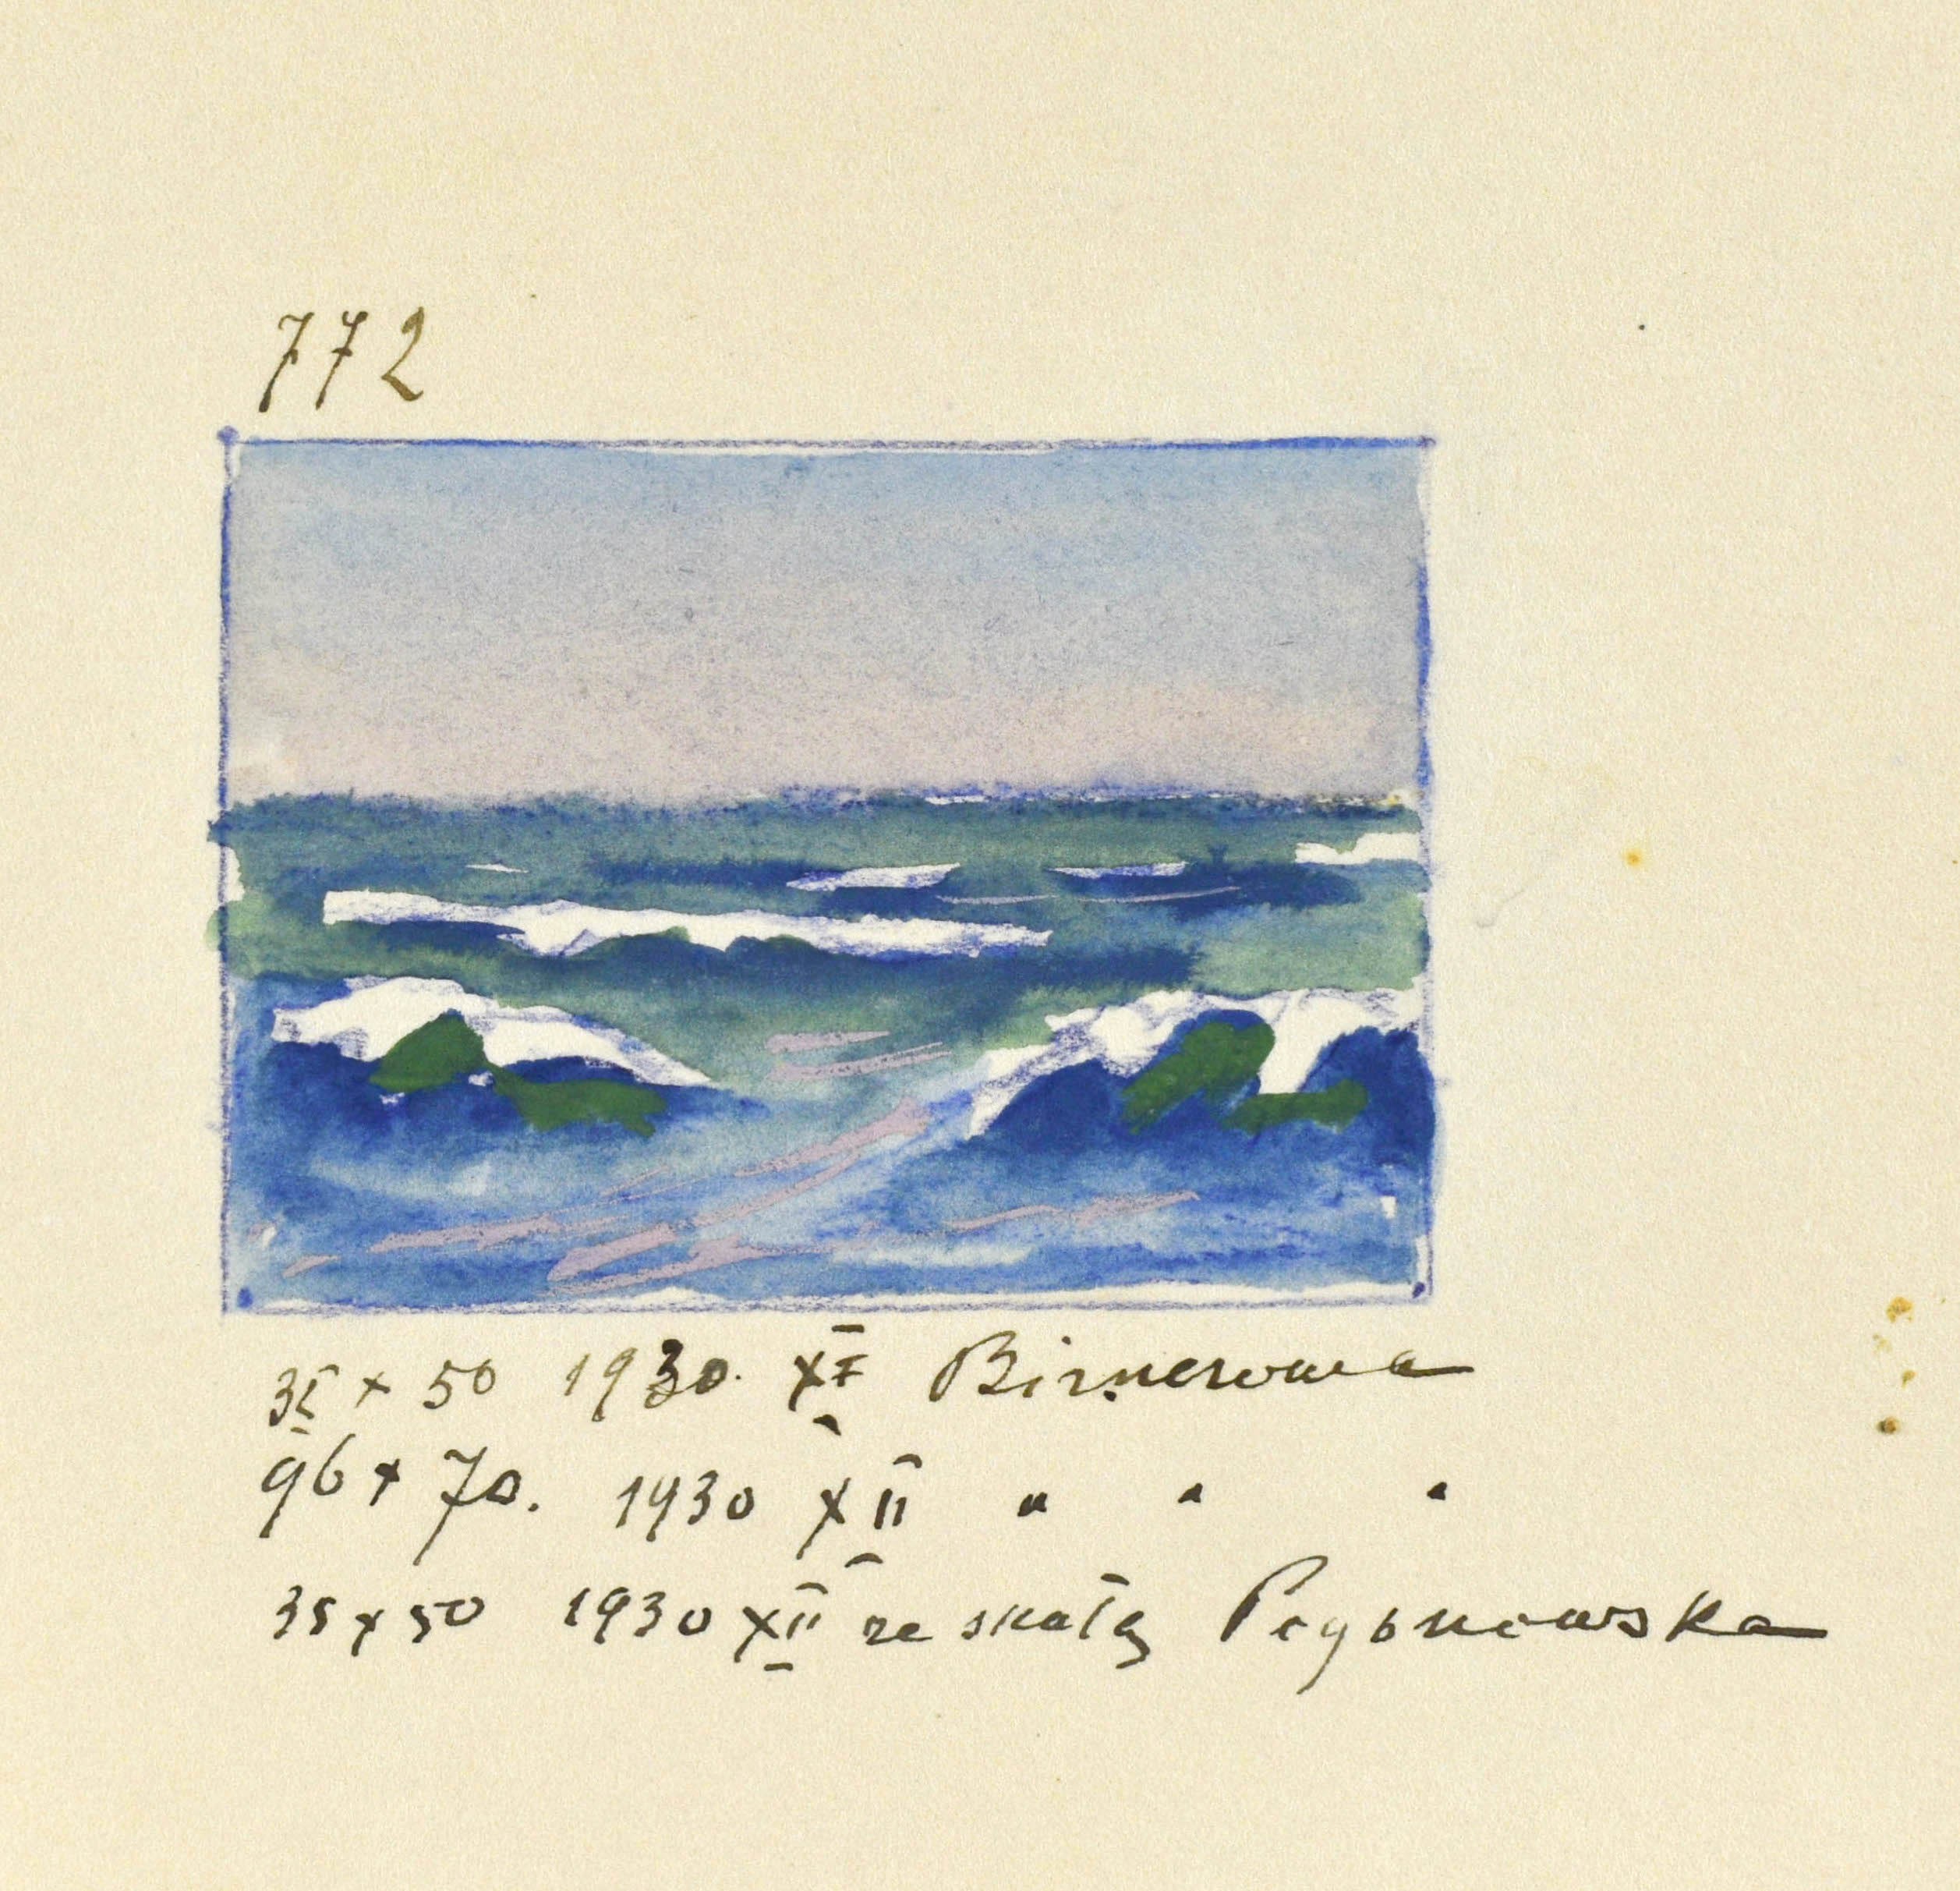 772
35 x 50 1930. XI Birnerowa
96 x 70. 1930 XII " " "
35 x 50 1930 XII ze skałą Pogonowska